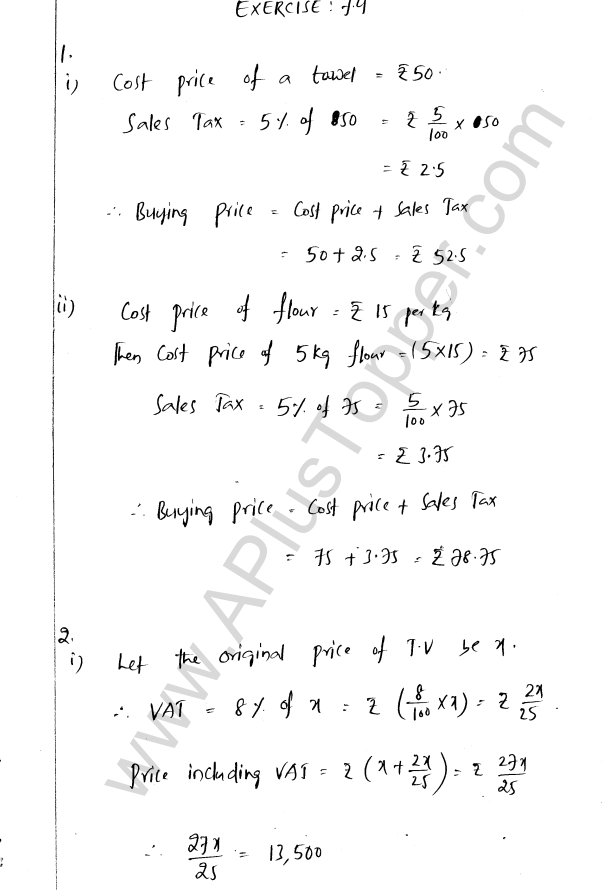 EXERCISE : 7.4
1.
i) Cost price of a towel = ₹50.
Sales Tax = 5% of 50 = ₹ 5/100 × 50
= ₹ 2.5
∴ Buying price = Cost price + Sales Tax
= 50 + 2.5 = ₹ 52.5
ii) Cost price of flour = ₹ 15 per kg
Then Cost price of 5 kg flour = (5×15) = ₹ 75
Sales Tax = 5% of 75 = 5/100 × 75
= ₹ 3.75
∴ Buying price = Cost price + Sales Tax
= 75 + 3.75 = ₹ 78.75
2.
i) Let the original price of T.V be x.
∴ VAT = 8% of x = ₹ (8/100 × x) = ₹ 2x/25.
Price including VAT = ₹ (x + 2x/25) = ₹ 27x/25
∴ 27x/25 = 13,500
www.APlusTopper.com